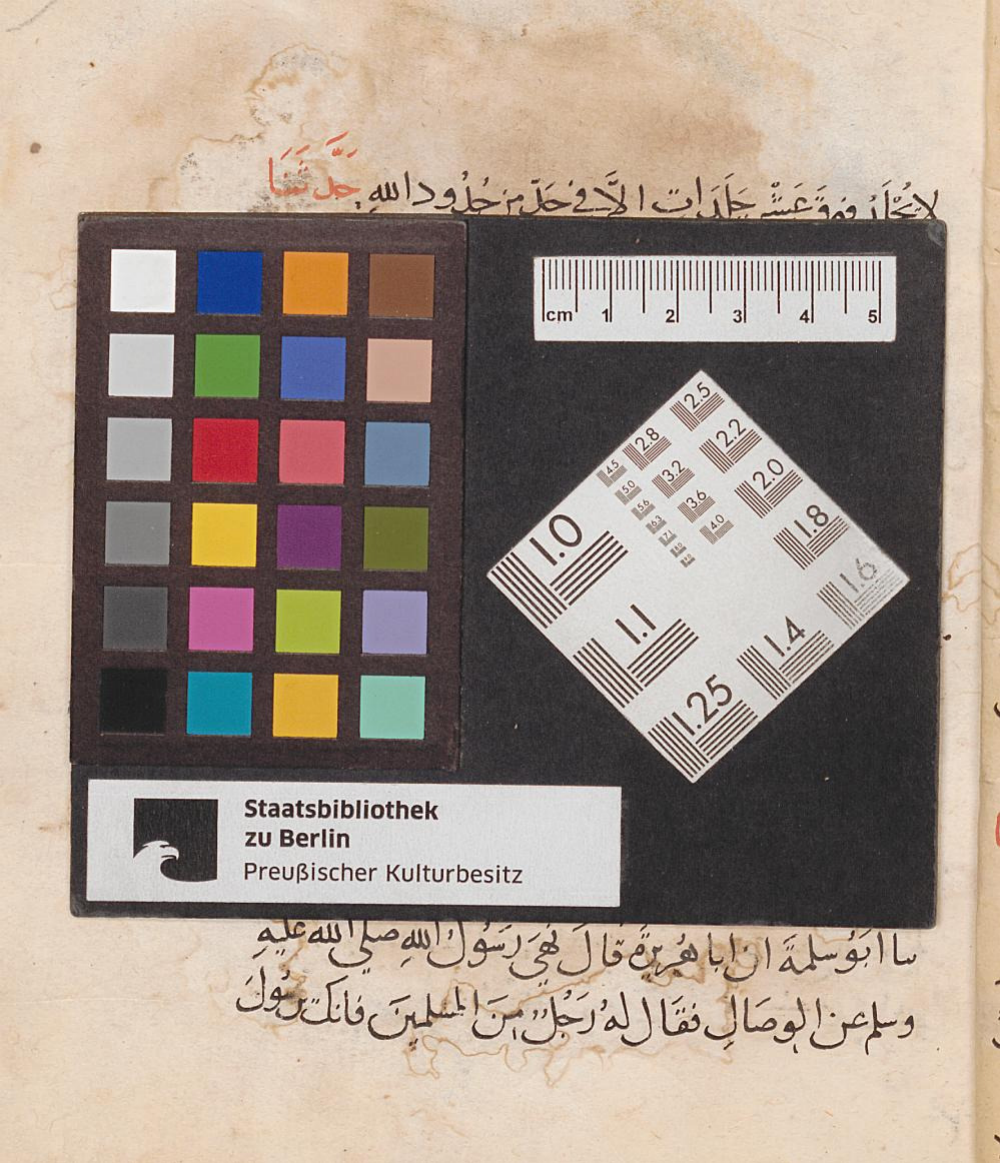 لا يُجْلَدُ فوقَ عَشْرِ جَلَدَات الَّا في حَدٍّ من حُدُود الله حَدَّثَنَا
cm 1 2 3 4 5
2.5
2.8 2.2
4.5 3.2 2.0
5.0 3.6
5.6 4.0 1.8
6.3
1.0 7.1 1.6
1.1 1.4
1.25
Staatsbibliothek
zu Berlin
Preußischer Kulturbesitz
ـنا ابُو سلمةَ ان ابا هُريرةَ قالَ نَهَى رَسُولُ اللهِ صلى الله عليهِ
وسلم عن الوِصَالِ فقَال لهُ رَجُلٌ مِنَ المسلمينَ فانكَ رسُولَ